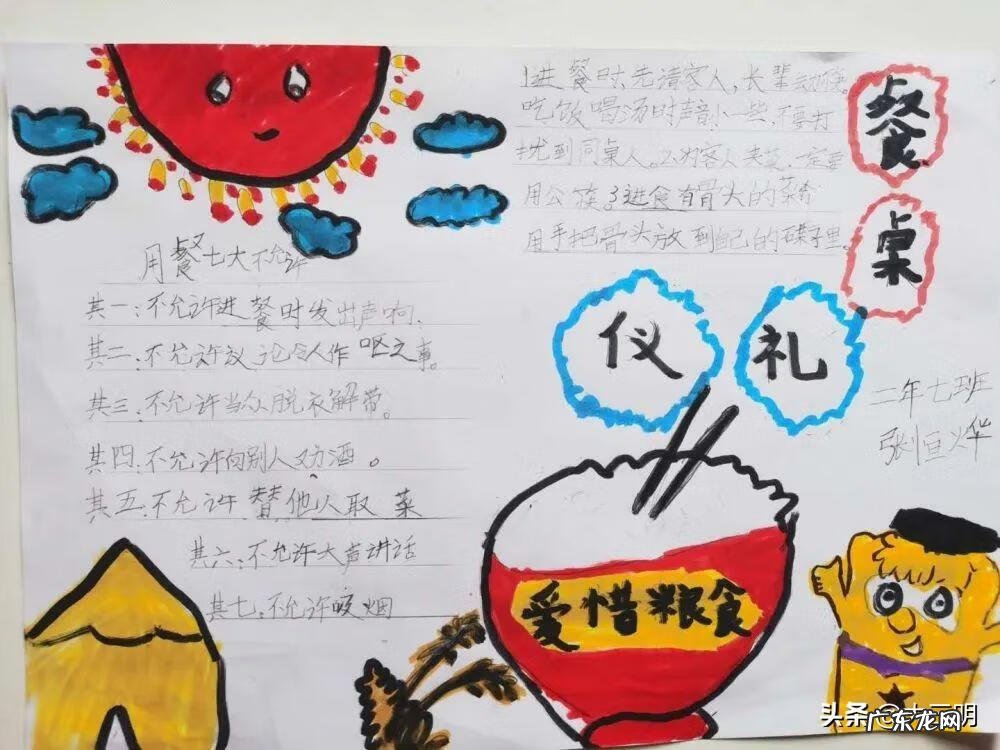 餐
桌
仪
礼
1进餐时先请客人,长辈动筷。
吃饭喝汤时声音小一些,不要打
扰到同桌人。2.为客人夹菜一定要
用公筷。3进食有骨头的菜
用手把骨头放到自己的碟子里。
二年七班
张恒烨
用餐七大不允许
其一:不允许进餐时发出声响.
其二:不允许议论令人作呕之事。
其三:不允许当众脱衣解带。
其四:不允许向别人劝酒。
其五:不允许替他人取菜
其六:不允许大声讲话
其七:不允许吸烟
爱惜粮食
头条
广东龙网